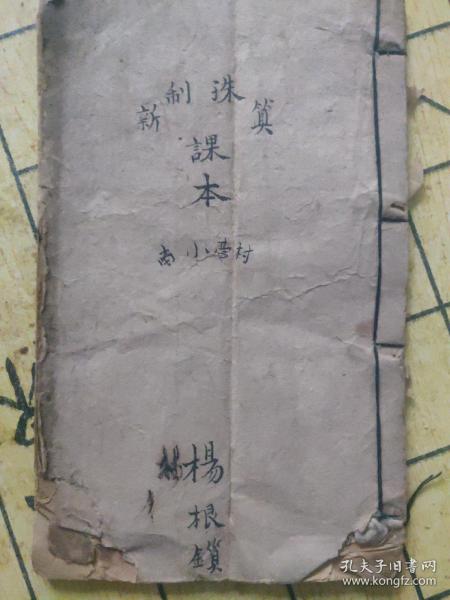 新制珠算
課本
南小营村
楊根鎖
孔夫子旧书网
www.kongfz.com